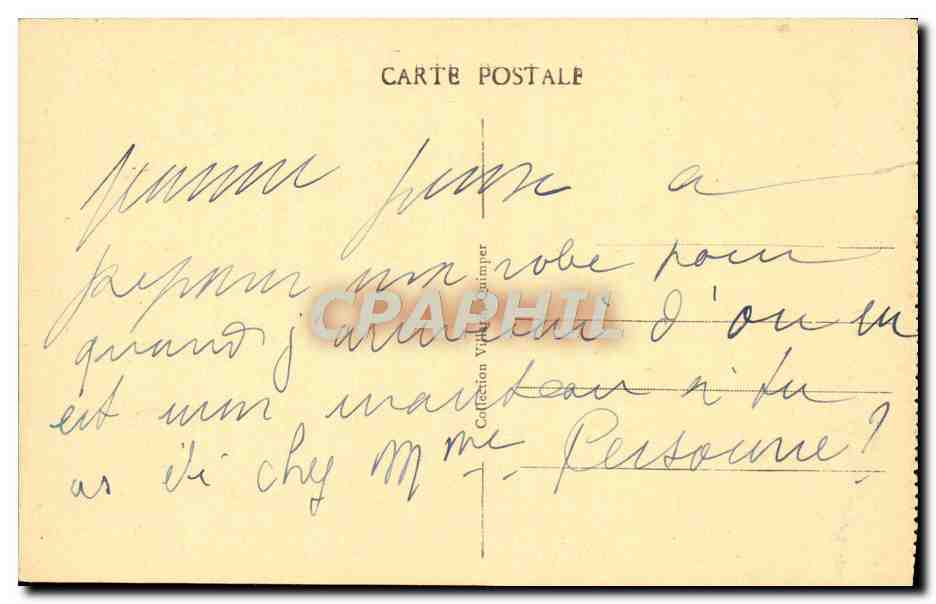 CARTE POSTALE
Jeanne pense a
préparer ma robe pour
quand j'arriverai d'ou en
est mon manteau si tu
as été chez Mme Personne ?
Collection Villard Quimper
CPARHIL